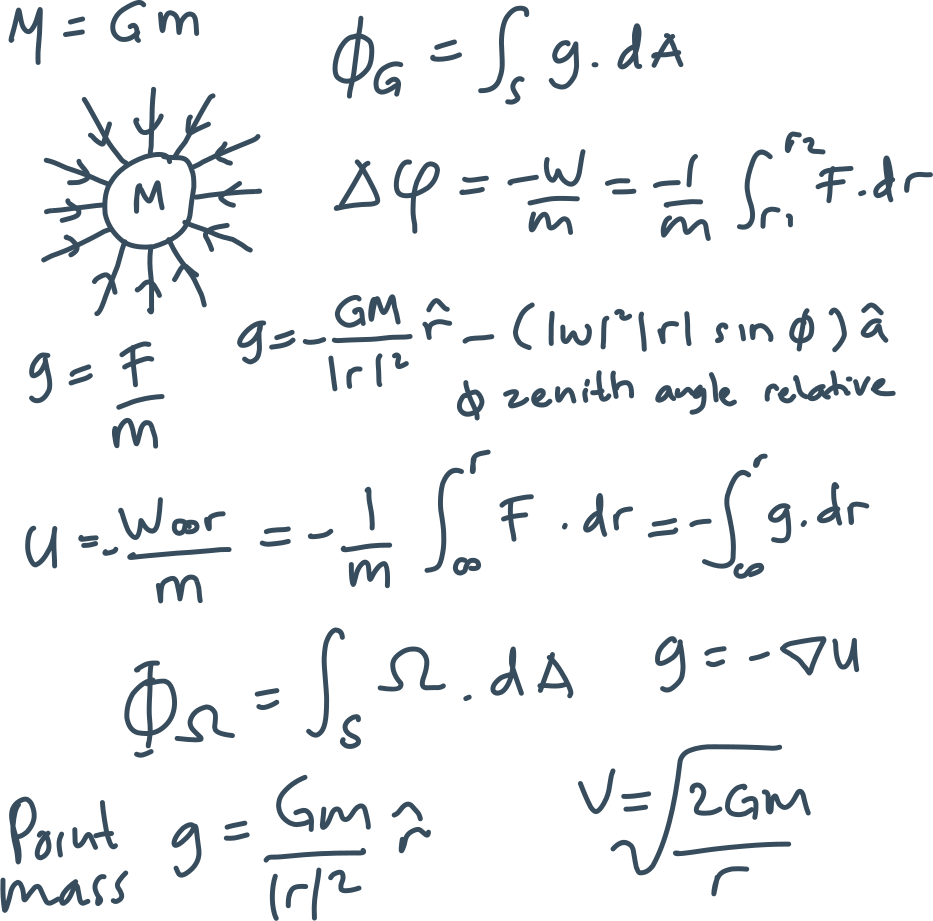 μ = Gm
ϕ_G = ∫_S g . dA
M
Δφ = -W/m = -1/m ∫_{r₁}^{r2} F . dr
g = F/m
g = - GM/|r|² r̂ - (|w|²|r| sin ϕ) â
ϕ zenith angle relative
U = - W∞r/m = - 1/m ∫_∞^r F . dr = - ∫_∞^r g . dr
Φ_Ω = ∫_S Ω . dA
g = - ∇U
Point mass g = Gm/|r|² r̂
V = √(2Gm/r)